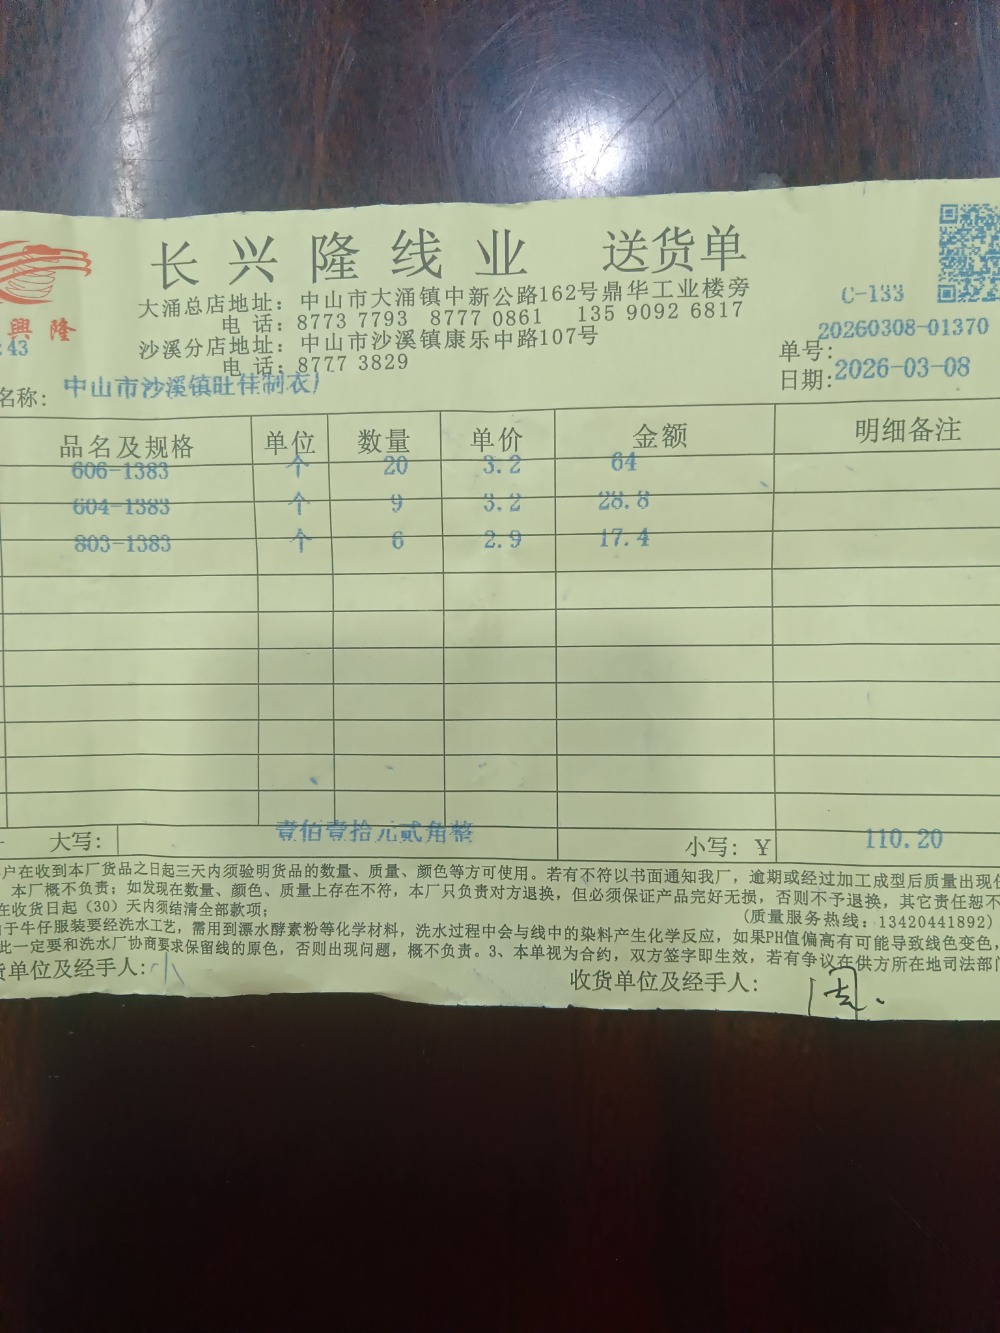 长兴隆线业 送货单
興隆
:43
大涌总店地址：中山市大涌镇中新公路162号鼎华工业楼旁
电 话：8773 7793 8777 0861 135 9092 6817
沙溪分店地址：中山市沙溪镇康乐中路107号
电 话：8777 3829
C-133
单号：20260308-01370
日期：2026-03-08
名称：中山市沙溪镇旺佳制衣厂
品名及规格 单位 数量 单价 金额 明细备注
606-1383 个 20 3.2 64
604-1383 个 9 3.2 28.8
803-1383 个 6 2.9 17.4
大写：壹佰壹拾元贰角整 小写：¥ 110.20
户在收到本厂货品之日起三天内须验明货品的数量、质量、颜色等方可使用。若有不符以书面通知我厂，逾期或经过加工成型后质量出现任
本厂概不负责；如发现在数量、颜色、质量上存在不符，本厂只负责对方退换，但必须保证产品完好无损，否则不予退换，其它责任恕不
在收货日起（30）天内须结清全部款项； （质量服务热线：13420441892）
于牛仔服装要经洗水工艺，需用到漂水酵素粉等化学材料，洗水过程中会与线中的染料产生化学反应，如果PH值偏高有可能导致线色变色，
此一定要和洗水厂协商要求保留线的原色，否则出现问题，概不负责。3、本单视为合约，双方签字即生效，若有争议在供方所在地司法部门
货单位及经手人：小 收货单位及经手人：